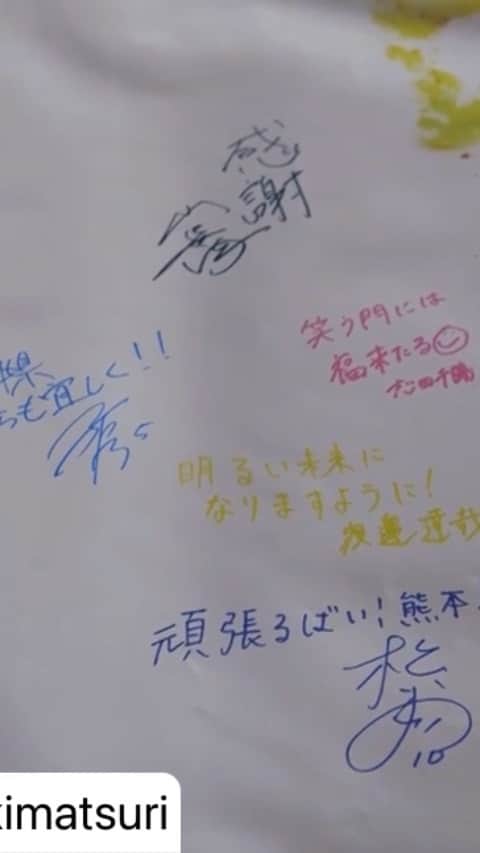 感
謝
笑う門には
福来たる
県、
らも宜しく!!
明るい未来に
なりますように!
渡邊達哉
頑張るばい!熊本
10
kimatsuri